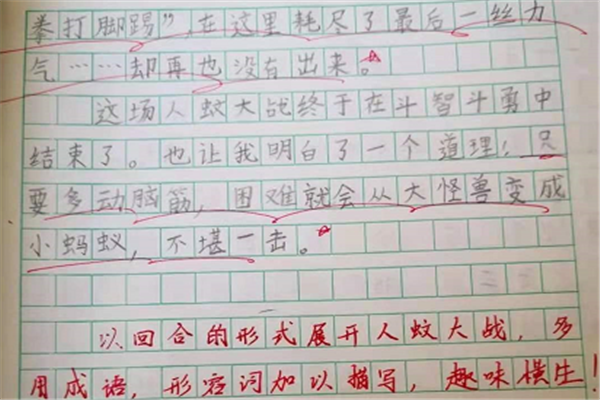 拳打脚踢”,在这里耗尽了最后一丝力
气……却再也没有出来。
这场人蚊大战终于在斗智斗勇中
结束了。也让我明白了一个道理！只
要多动脑筋，困难就会从大怪兽变成
小蚂蚁，不堪一击。
以回合的形式展开人蚊大战，多
用成语，形容词加以描写，趣味横生！